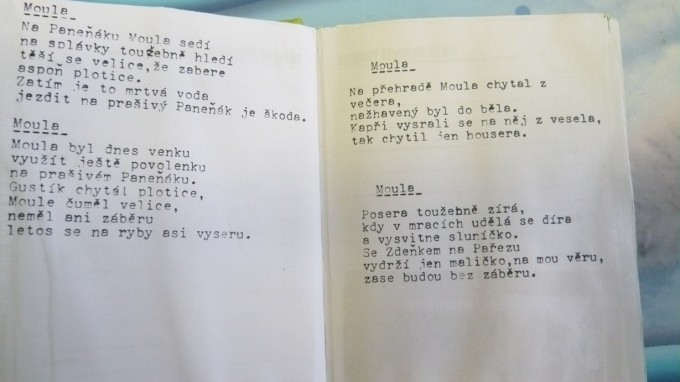 Moula
Na Paneňáku Moula sedí
na splávky toužebně hledí
těší se velice,že zabere
aspoň plotice.
Zatím je to mrtvá voda
jezdit na prašivý Paneňák je škoda.
Moula
Moula byl dnes venku
využít ještě povolenku
na prašivám Paneňáku.
Gustík chytál plotice,
Moule čuměl velice,
neměl ani záběru
letos se na ryby asi vyseru.
Moula
Na přehradě Moula chytal z
večera,
nažhavený byl do běla.
Kapři vysrali se na něj z vesela,
tak chytil jen housera.
Moula
Posera toužebně zírá,
kdy v mracích udělá se díra
a vysvitne sluníčko.
Se Zdeňkem na Pařezu
vydrží jen maličko,na mou věru,
zase budou bez záběru.